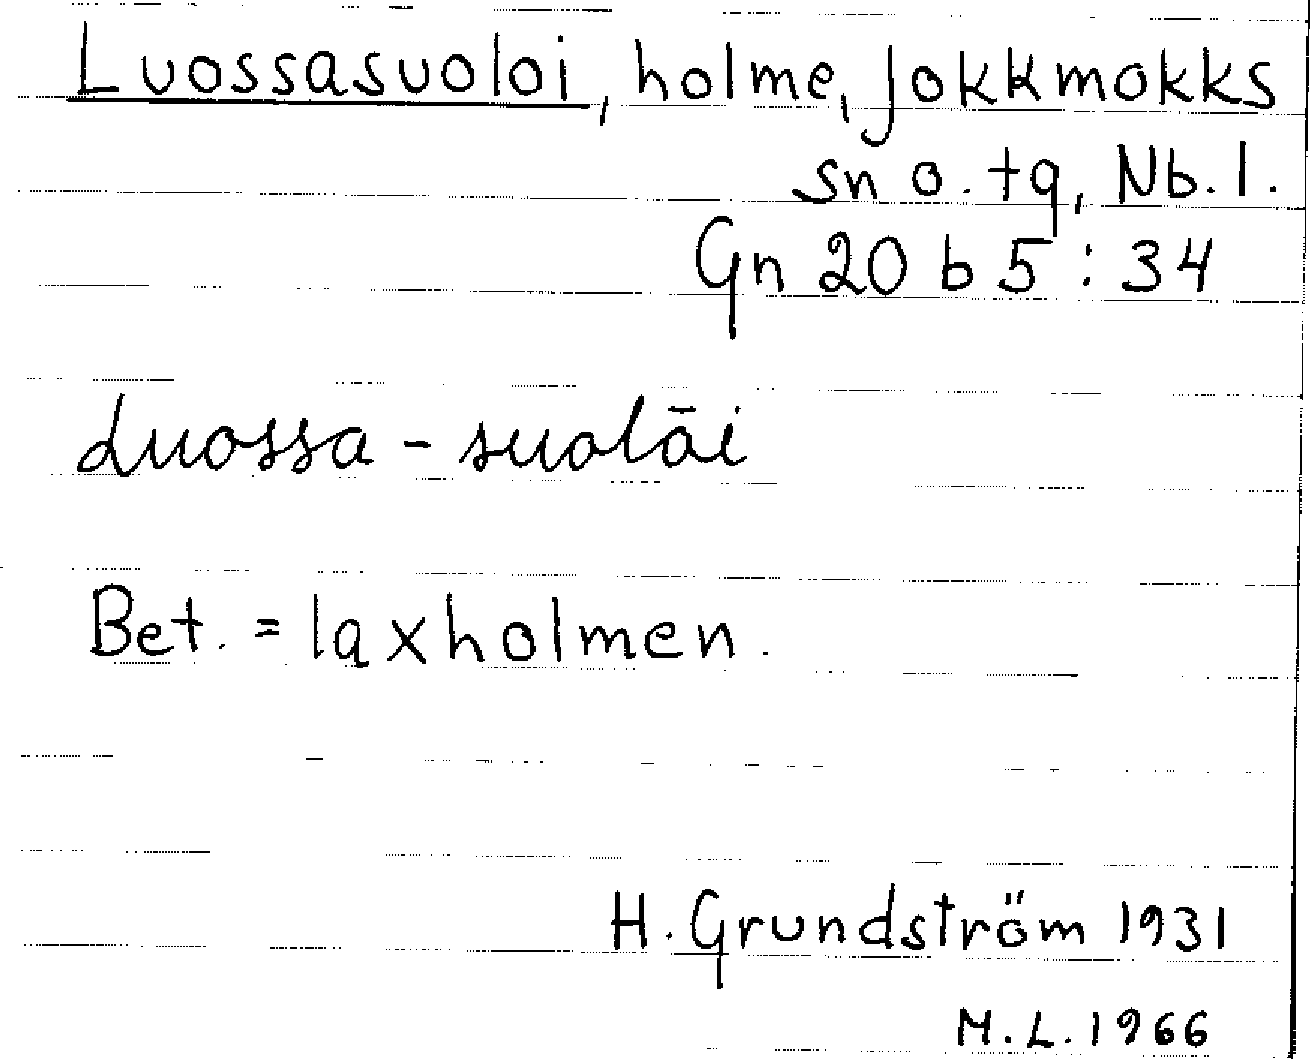 Luossasuoloi, holme, Jokkmokks
sn o. tg, Nb. l.
Gn 20 b 5 : 34
Luossa - suolāi
Bet. = laxholmen.
H. Grundström 1931
M.L. 1966